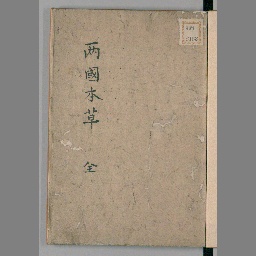 两國本草
全